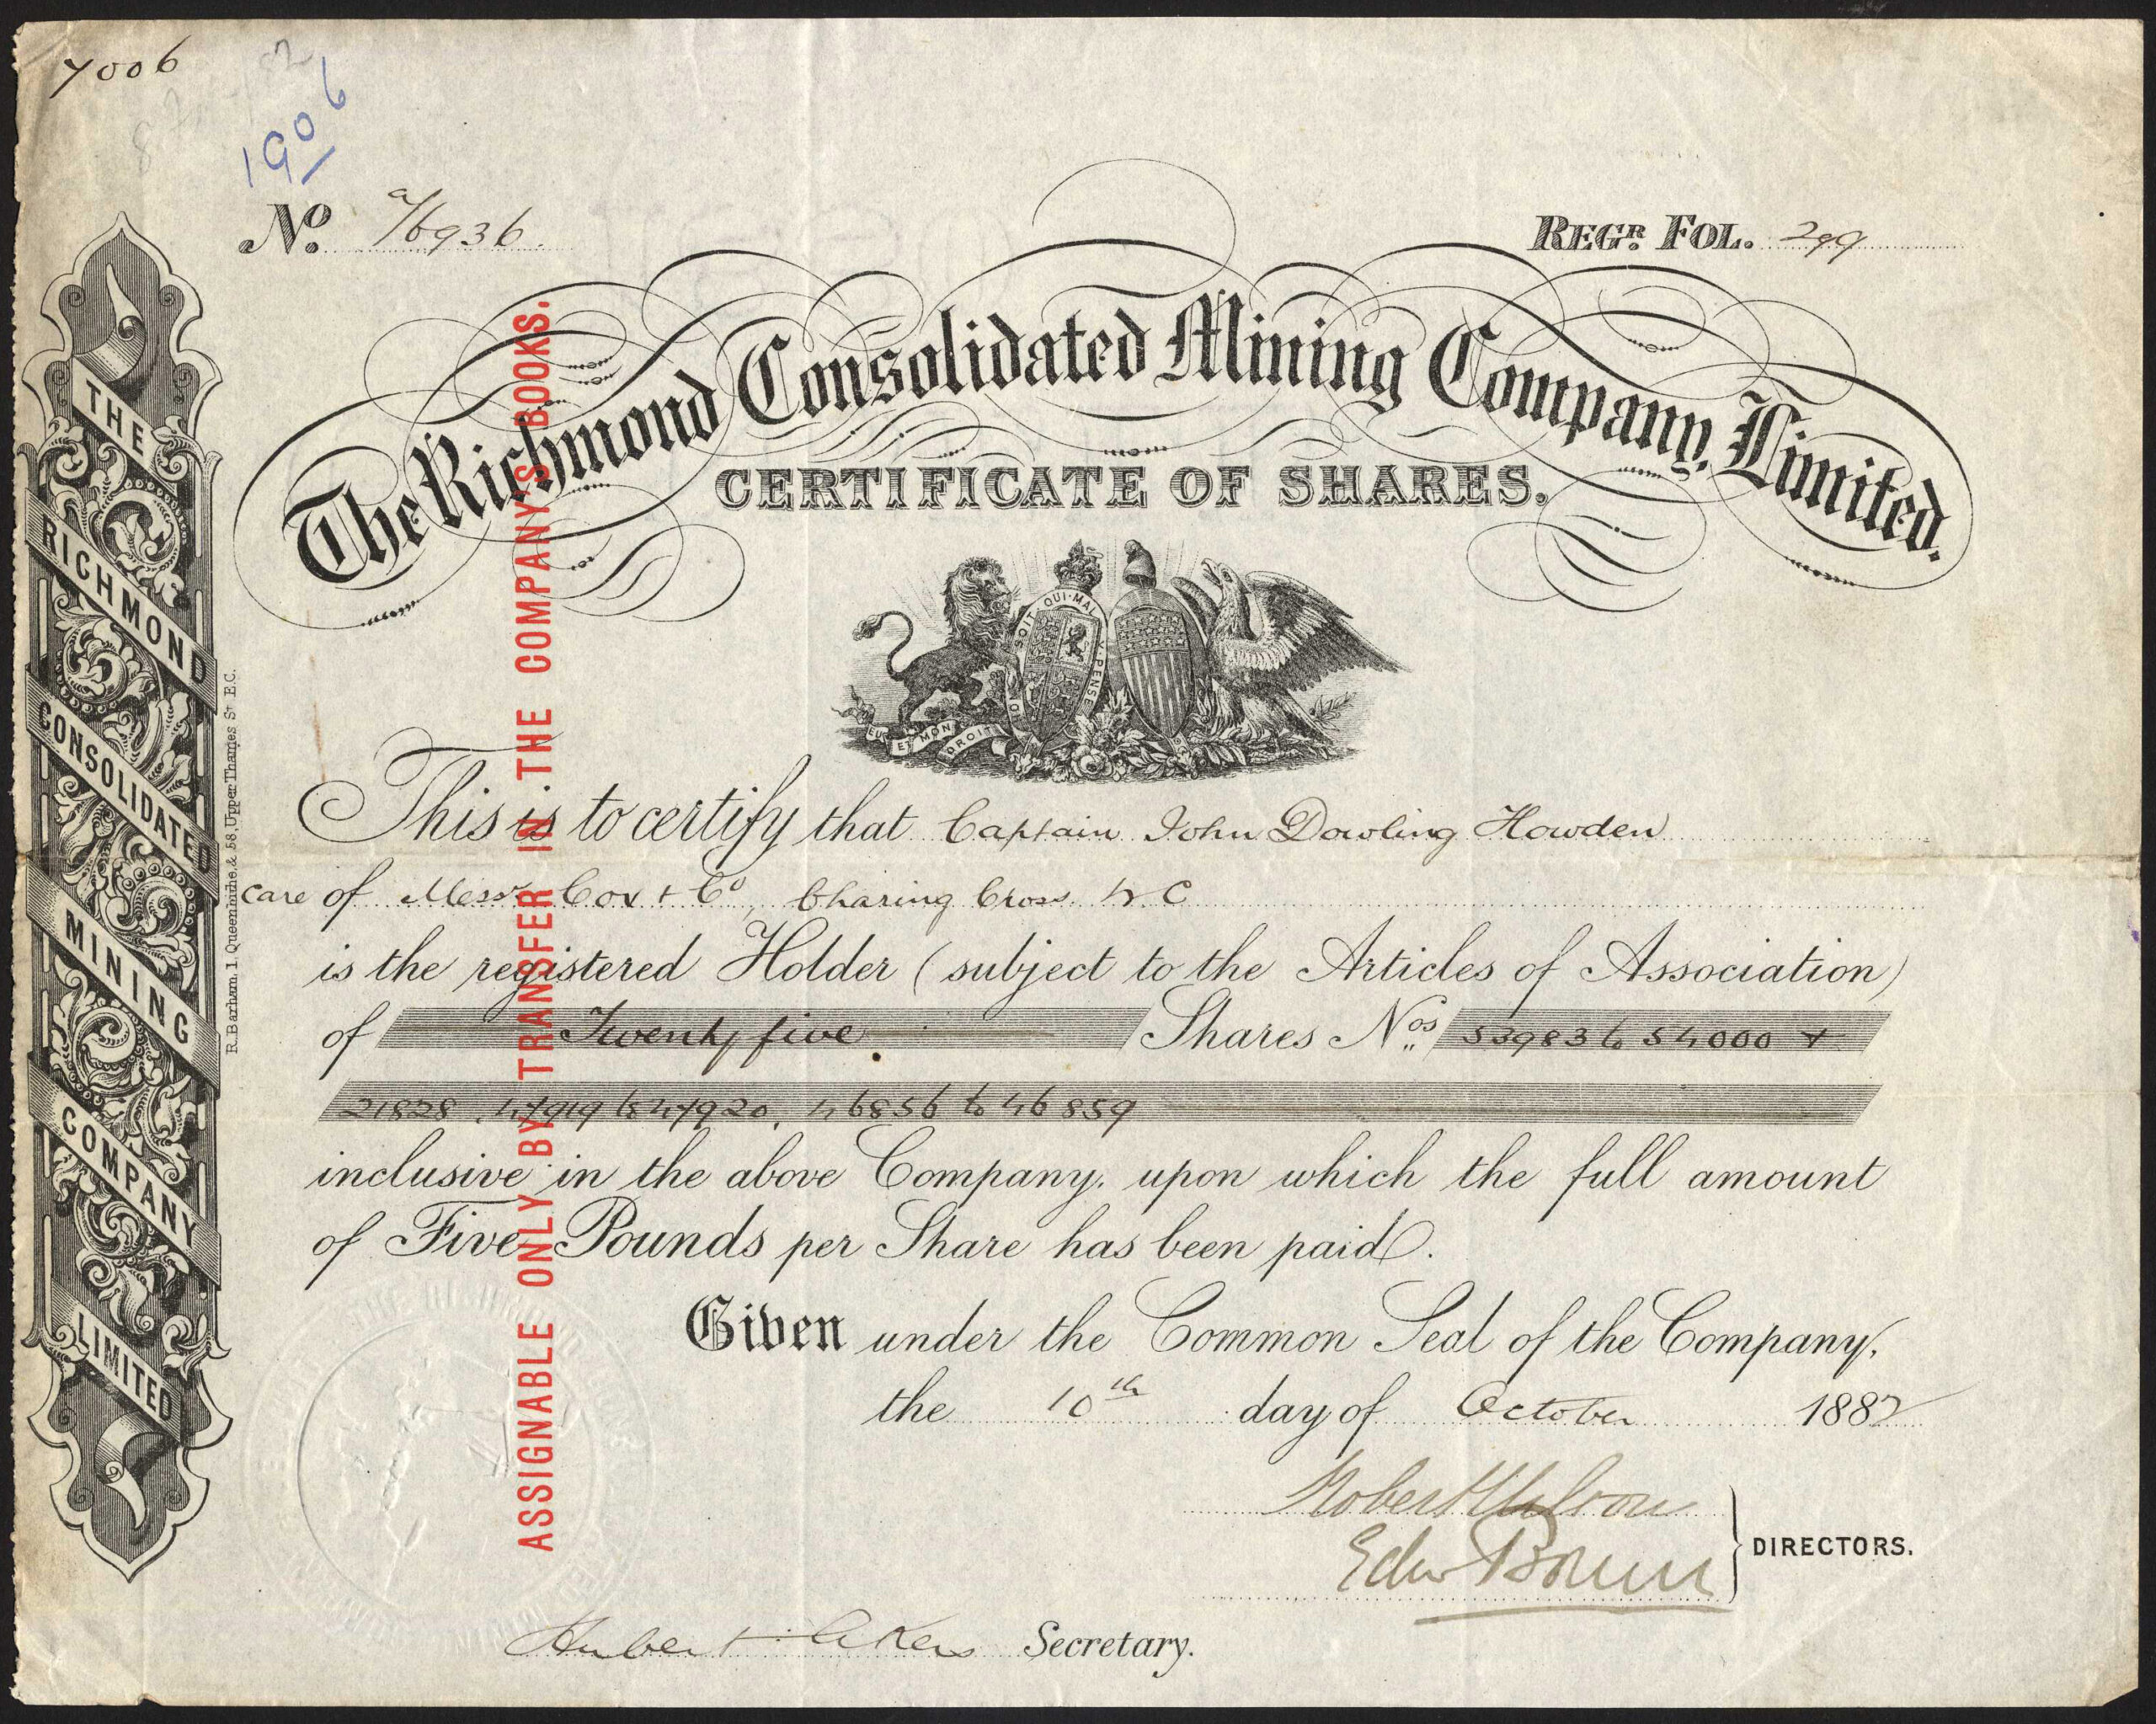 7006
1906
No. a/6936.
REGR. FOL. 299
The Richmond Consolidated Mining Company, Limited.
CERTIFICATE OF SHARES.
HONI SOIT QUI MAL Y PENSE
DIEU ET MON DROIT
This is to certify that Captain John Dowling Howden
care of Messrs Cox & Co, Charing Cross. W C
is the registered Holder (subject to the Articles of Association)
of Twenty five Shares Nos. 53983 to 54000 +
21828, 47919 to 47920, 46856 to 46859
inclusive in the above Company, upon which the full amount
of Five Pounds per Share has been paid.
Given under the Common Seal of the Company,
the 10th day of October 1882
Edw Brown
DIRECTORS.
Hubert Akers Secretary.
ASSIGNABLE ONLY BY TRANSFER IN THE COMPANY'S BOOKS.
THE
RICHMOND
CONSOLIDATED
MINING
COMPANY
LIMITED
R. Barham, 1, Queenhithe, & 58, Upper Thames St. E.C.